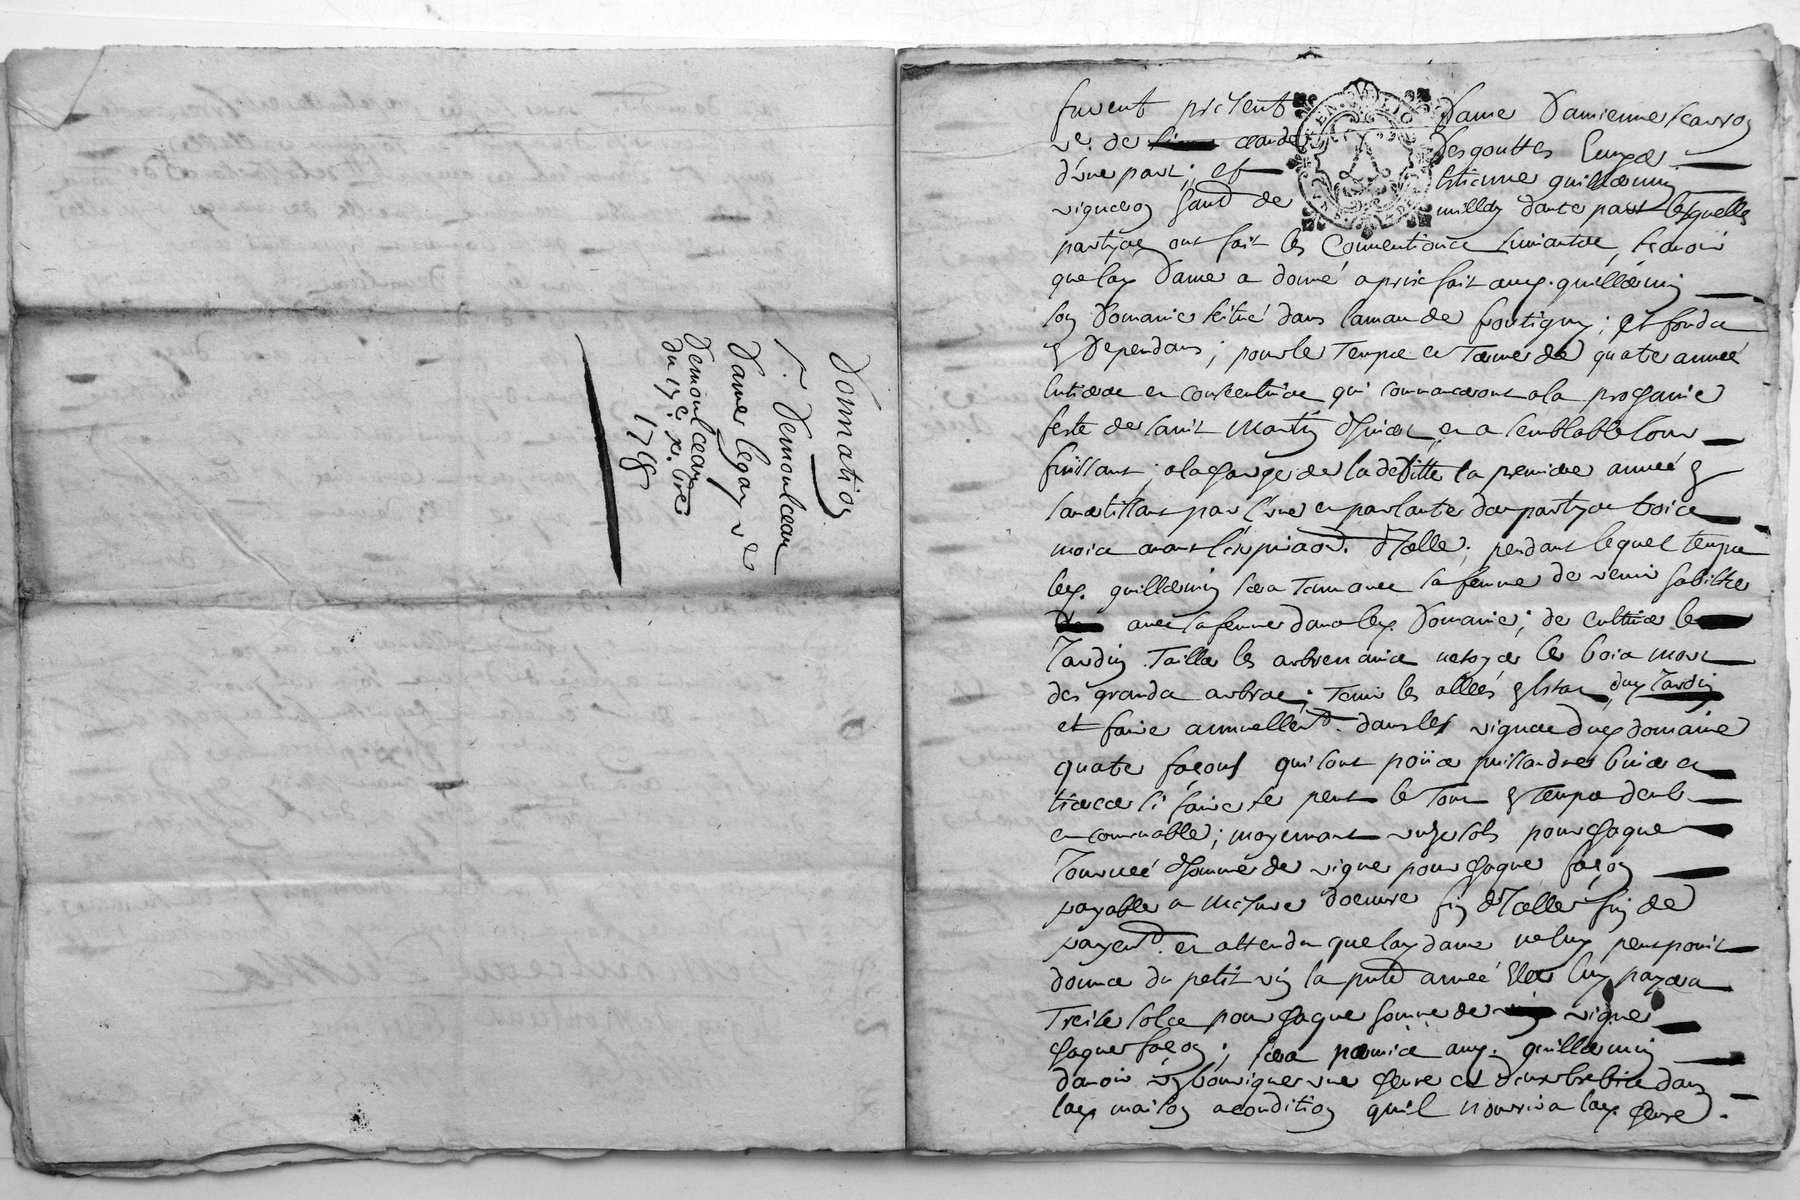 Donnation
Sr. Demoulceau
Dame legay ve
Demoulceau
du 17e. xbre
1718
furent present Dame Damienne
ve. de claude Desgouttes
d'une part; et Estienne guillaumin
vigneron demt. de milly dautre part lesquelles
partyes ont fait les Conventions suivantes, scavoir
que lad. Dame a donné a prix fait aud. guillaumin
son Domaine scitué dans la de ; et fonds
en Dependans; pour le Temps et Terme de quatre année
Entieres et consecutives qui commanceront a la prochaine
feste de saint Martin d'hiver, et a semblable Jour
finissant; a la charge de la deditte la premiere année en
savertissant par l'une en parlantes des partyes trois
mois avant l'expiraon. D'Icelle; pendant lequel temps
led. guillaumin sera Tenu avec sa femme de venir habitter
avec sa femme dans led. Domaine; de cultiver le
Jardin Tailler les arbres nains netoyer le bois mort
des grands arbres; Tenir les allées en Estat dud. Jardin
et faire annuellemt. dans les vignes dud. domaine
quatre façons qui sont poüer puissandrer biner et
tiercer si faire se peut le Tout en Temps deub
et convenable; moyennant unze sols pour chaque
Journée d'homme de vigne pour chaque façon
payable a mesure d'oeuvre fin D'Icelle fin de
payemt. et attendu que lad. dame ne luy peut point
donner du petit vin la pnte. année Elle luy payera
Treize sols pour chaque homme de vigne
chaque façon; sera permis aud. guillaumin
d'avoir une chevre et deux brebis dans
lad. maison a condition qu'il nourrira lad. chevre.